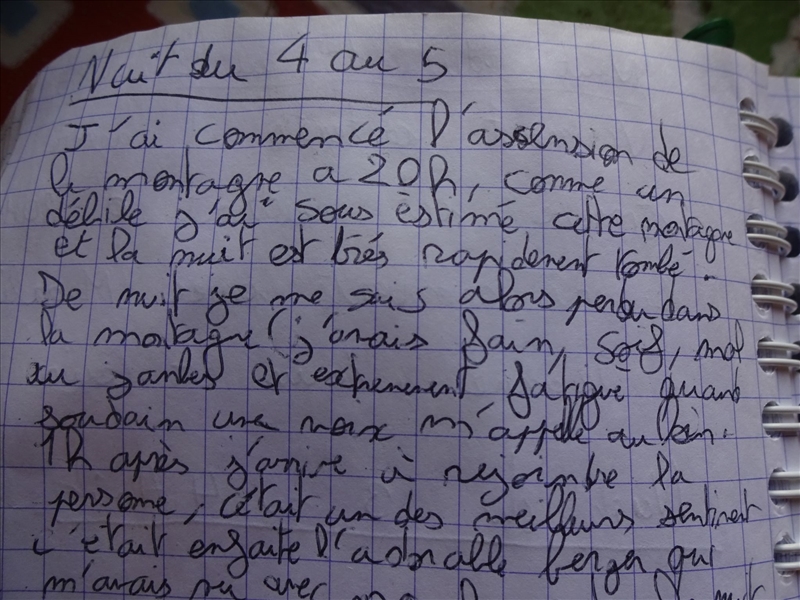 Nuit du 4 au 5
J'ai commencé l'assension de
la montagne a 20h, comme un
débile j'ai sous estimé cette montagne
et la nuit est très rapidement tombé.
De nuit je me suis alors perdu dans
la montagne j'avais faim, soif, mal
au jambes et extremement fatigué quand
soudain une voix m'appelle au loin.
1h après j'arrive à rejoindre la
personne, c'était un des meilleurs sentiment
c'était enfaite l'adorable berger qui
m'avais vu avec ma